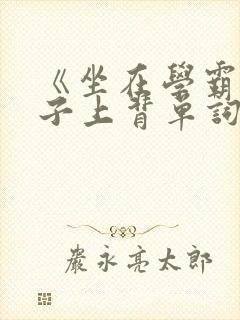 《坐在學霸
子上背單詞
嚴永亮太郎